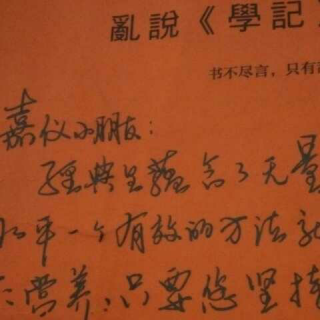 亂說《學記》
书不尽言，只有
嘉仪小朋友：
經典里蘊含了无量
平一个有效的方法就
营养，只要您坚持